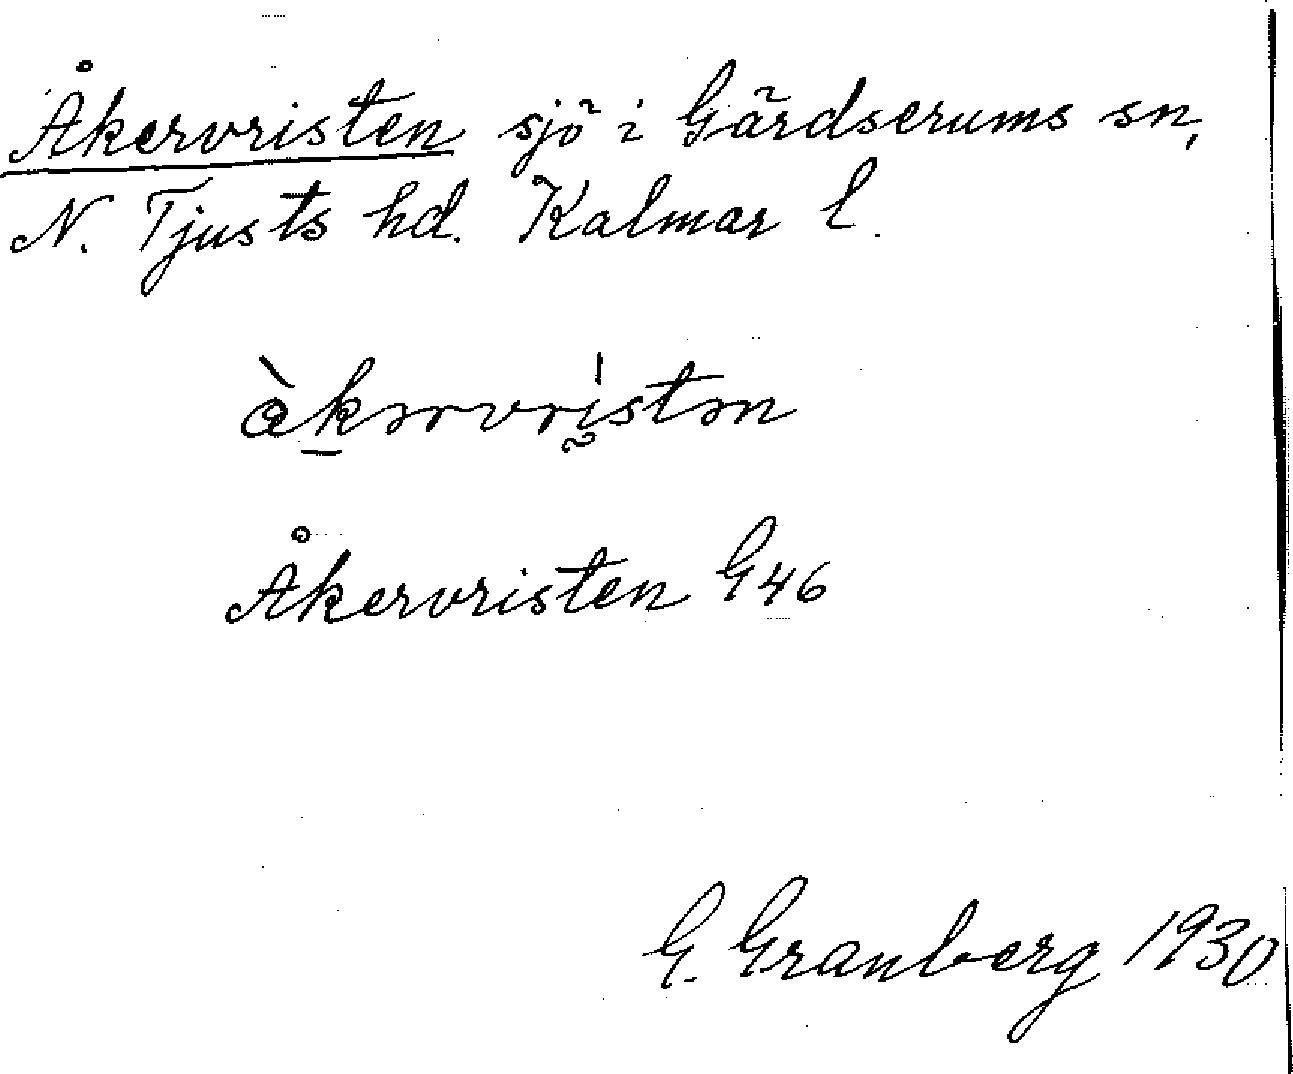 Åkervristen sjö i Gärdserums sn,
N. Tjusts hd. Kalmar l.
àkərvrístən
Åkervristen G46
G. Granberg 1930